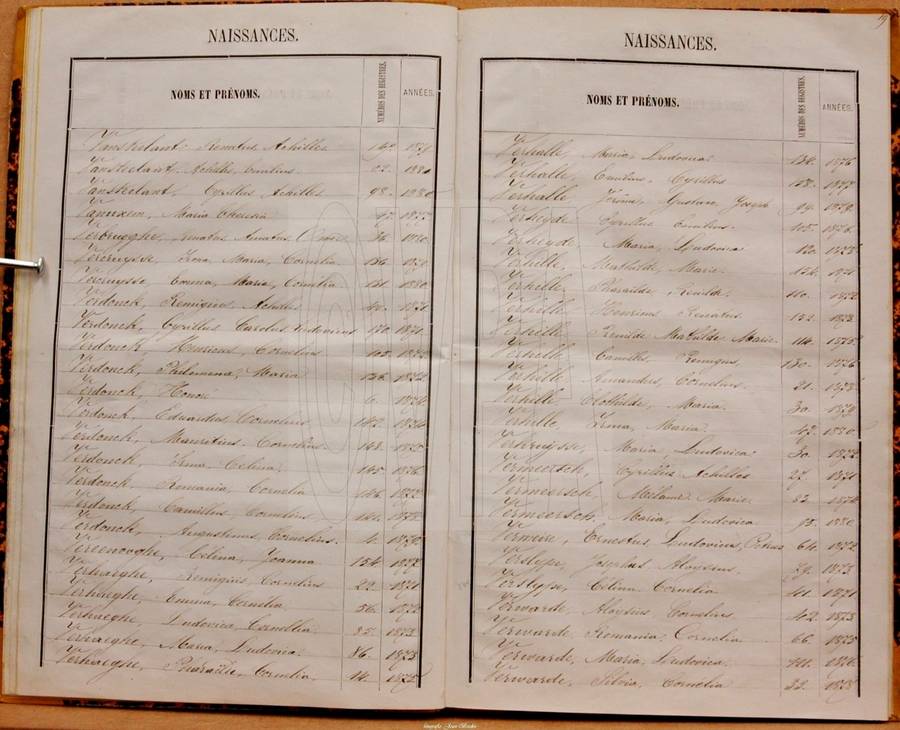 NAISSANCES.
NOMS ET PRÉNOMS. NUMÉROS DES REGISTRES. ANNÉES.
Vansteelant Renatus Achilles
Vansteelant, Achilles, Emilius
Vansteelant, Cyrillus Achilles 98. 1880
Maria Theresia
Verbrugghe, Renatus Amatus
Vercruysse, Maria, Cornelia 136.
Vercruysse, Emma, Maria, Cornelia 1880
Verdonck, Remigius, Achilles 1871
Verdonck, Cyrillus Carolus Ludovicus 170. 1871
Verdonck, Henricus, Cornelius 105. 1872
Verdonck, Philomena, Maria 126.
Verdonck, Honoré 6. 1874
Verdonck, Eduardus Cornelius 142. 1874
Verdonck, Mauritius Cornelius 148. 1875
Verdonck, Irma, Celina. 145 1876
Verdonck, Romania, Cornelia 146
Verdonck, Camillus Cornelius 1878
Verdonck, Augustinus, Cornelius. 4. 1880
Vereenooghe, Celina, Joanna 154.
Verhaeghe, Remigius, Cornelius 29. 1871
Verhaeghe, Emma, Cornelia 56. 1872
Verhaeghe, Ludovica, Cornelia 35. 1873
Verhaeghe, Maria, Ludovica 86. 1873
Verhaeghe, Pharaïlde, Cornelia 14. 1875
19
NAISSANCES.
NOMS ET PRÉNOMS. NUMÉROS DES REGISTRES. ANNÉES.
Verhalle, Maria Ludovica 134. 1876
Verhalle, Emilius. Cyrillus
Verhalle, Jérôme, Gustave Joseph 94. 1879
Verheyde, Cyrillus Emilius. 105. 1876
Verheyde, Maria, Ludovica 120.
Verhille, Mathilde, Marie 154. 1871
Verhille Pharaïlde, Renilde. 110. 1872
Verhille Henricus Renatus 152. 1873
Verhille, Renilde Mathilde Marie 114. 1875
Verhille Camillus, Remigius, 130. 1876
Verhille, Amandus, Cornelius. 21. 1878
Verhille Clothilde, Maria. 30. 1879
Verhille, Irma, Maria 42. 1880
Maria, Ludovica 30. 1872
Vermeersch, Cyrillus Achilles 27. 1871
Vermeersch, Mélanie Marie 32. 1874
Vermeersch Maria, Ludovica 15. 1880
Vermeire, Ernestus, Ludovicus, Petrus 64. 1872
Verslype, Josephus Aloysius 29. 1873
Verslype, Celina Cornelia 1871
Verwaerde, Aloysius Cornelius 42. 1873
Verwaerde Romania, Cornelia 66 1875
Verwaerde, Maria, Ludovica 1876
Verwaerde, Silvia, Cornelia 33. 1878